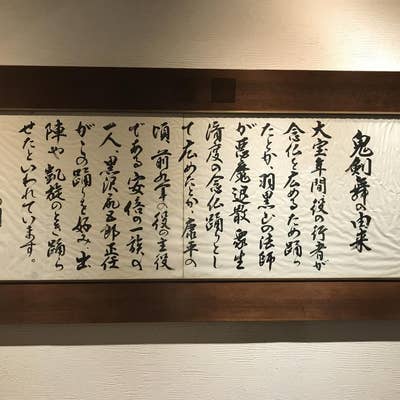 鬼剣舞の由来
大宝年間役の行者が
念仏を広めるため踊っ
たとか、羽黒山の法師
が悪魔退散衆生
済度の念仏踊りとし
て広めたとか、康平の
頃前九年の役の主役
である安倍の一族の
一人、黒沢尻五郎正任
がこの踊りを好み、出
陣や凱旋のとき踊ら
せたといわれています。